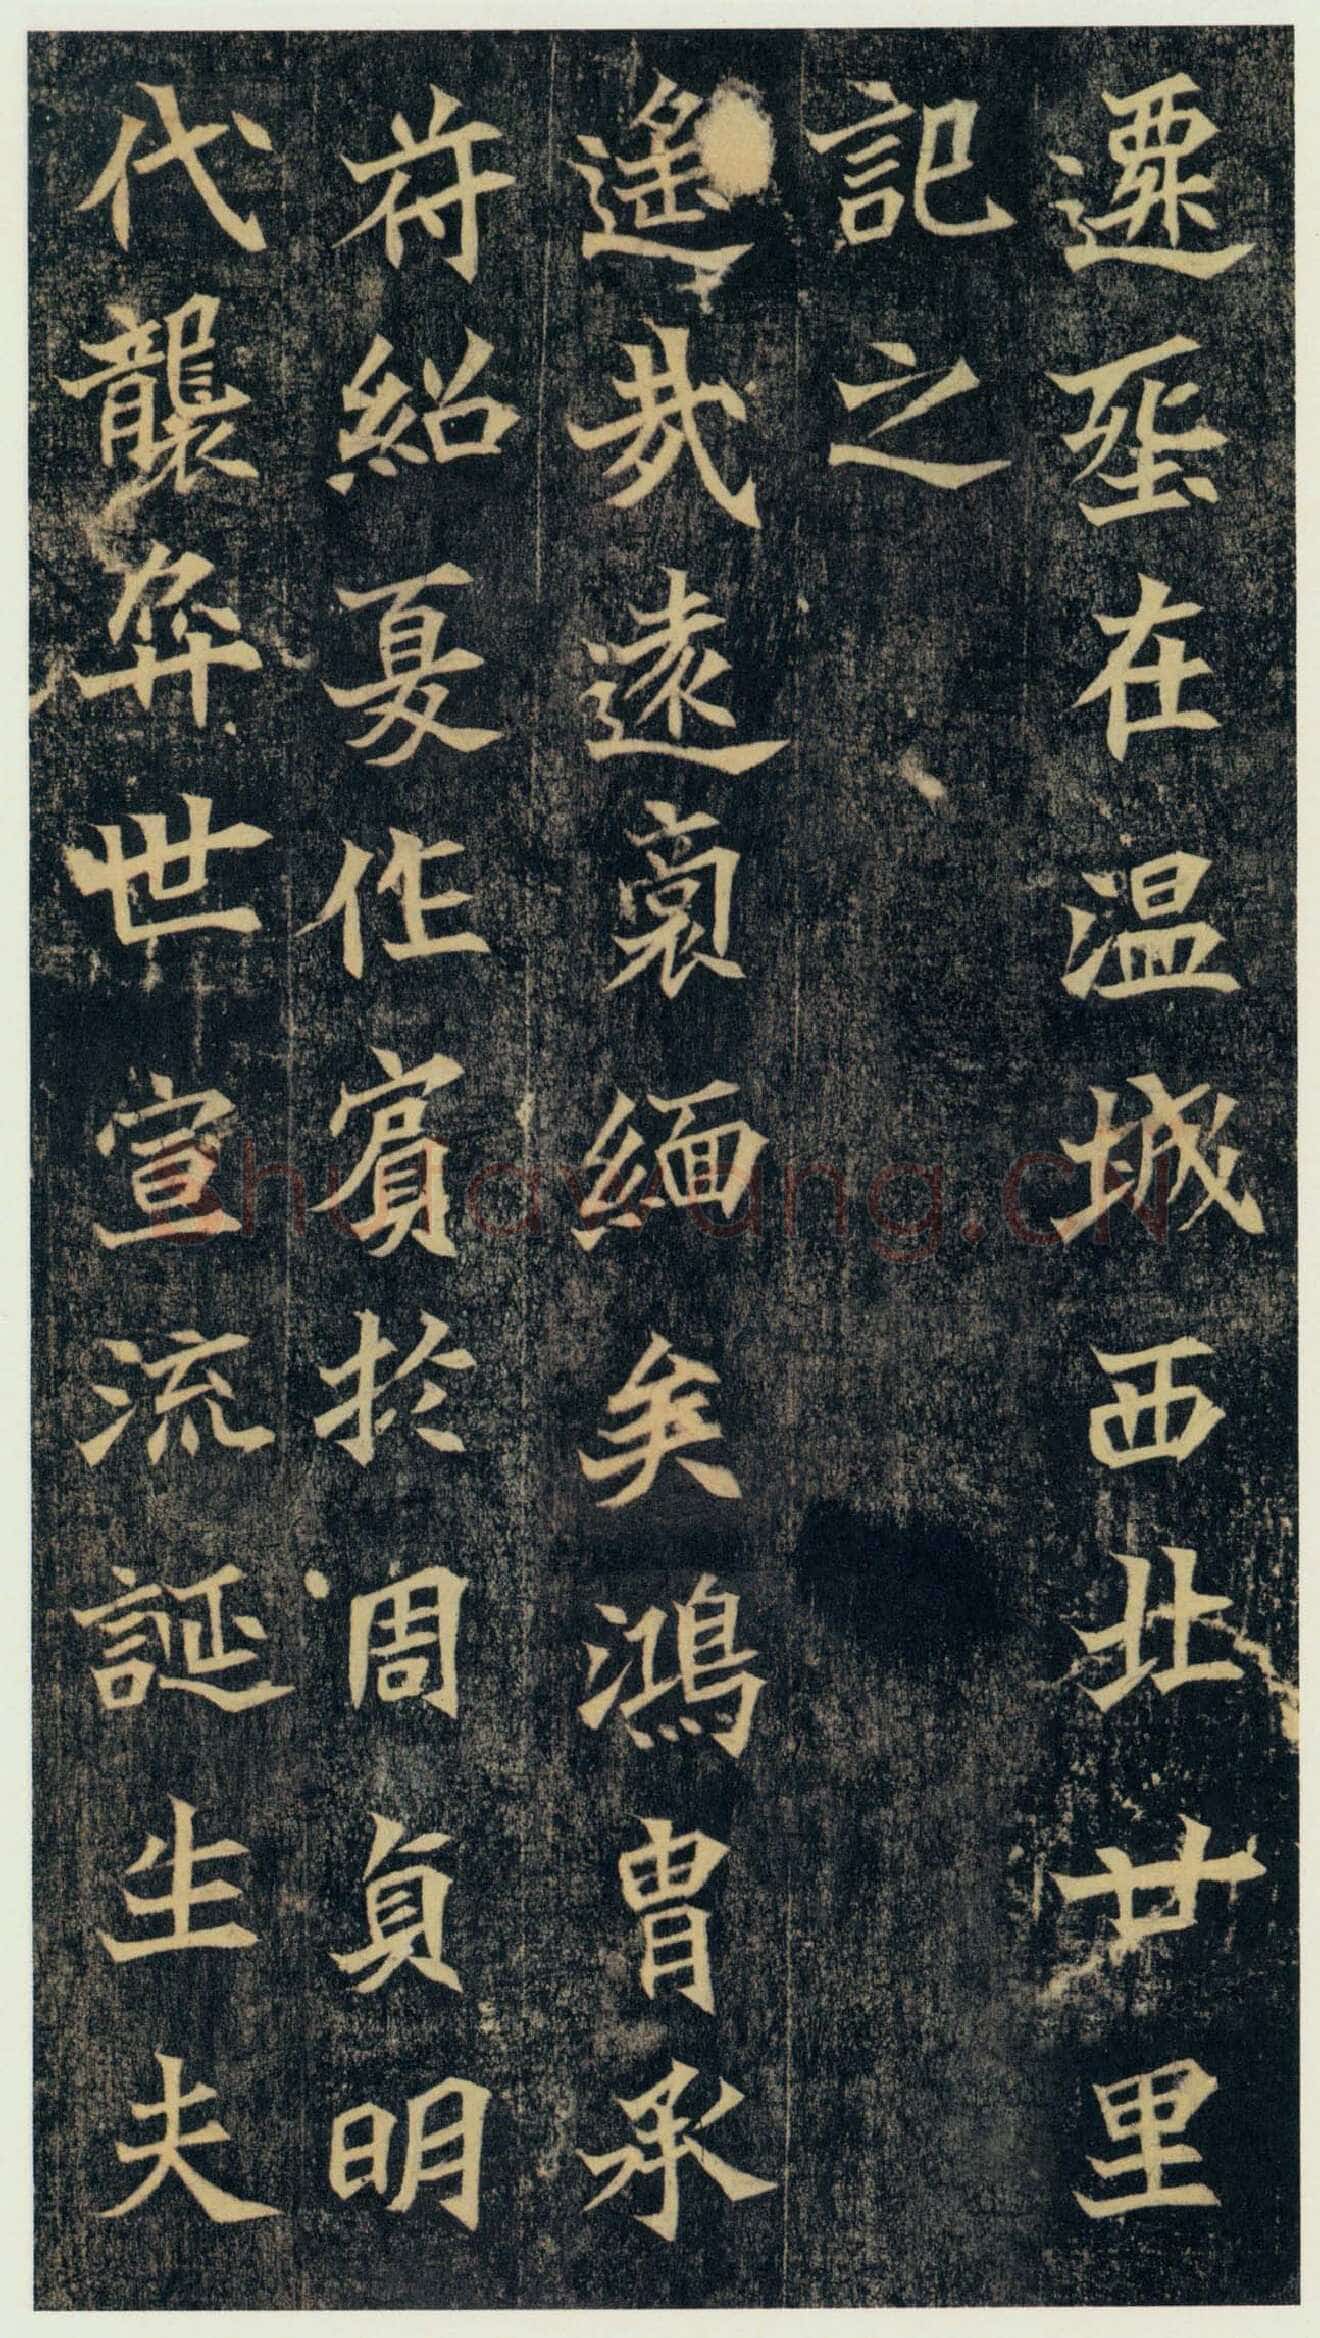 遷塟在温城西北廿里
記之
遥哉遠裔緬矣鴻胄承
符紹夏作賓於周貞明
代襲弈世宣流誕生夫
Shufawang.CN